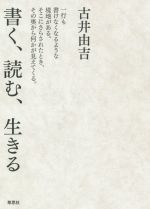 古井由吉
一行も
書けなくなるような
境地がある。
そこにさらされたとき、
その奥から何かが見えてくる。
書く、読む、生きる
草思社